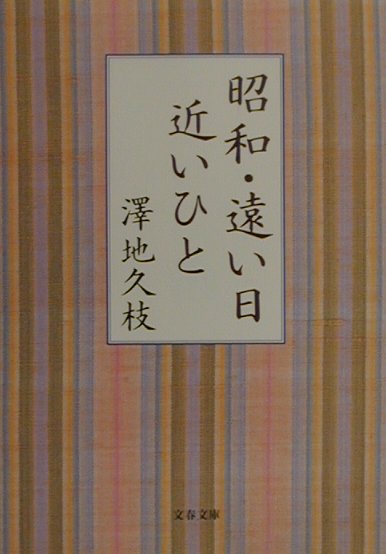 昭和・遠い日
近いひと
澤地久枝
文春文庫